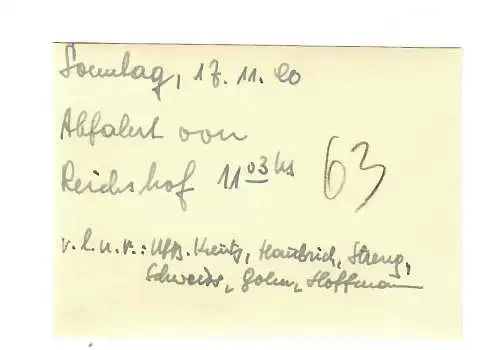 Sonntag, 17.11.40
Abfahrt von
Reichshof 11 03 hs
63
v.l.n.r.: Uffz. Kreutz, Haubrich, Streng,
Schweiss, Gohm, Hoffmann